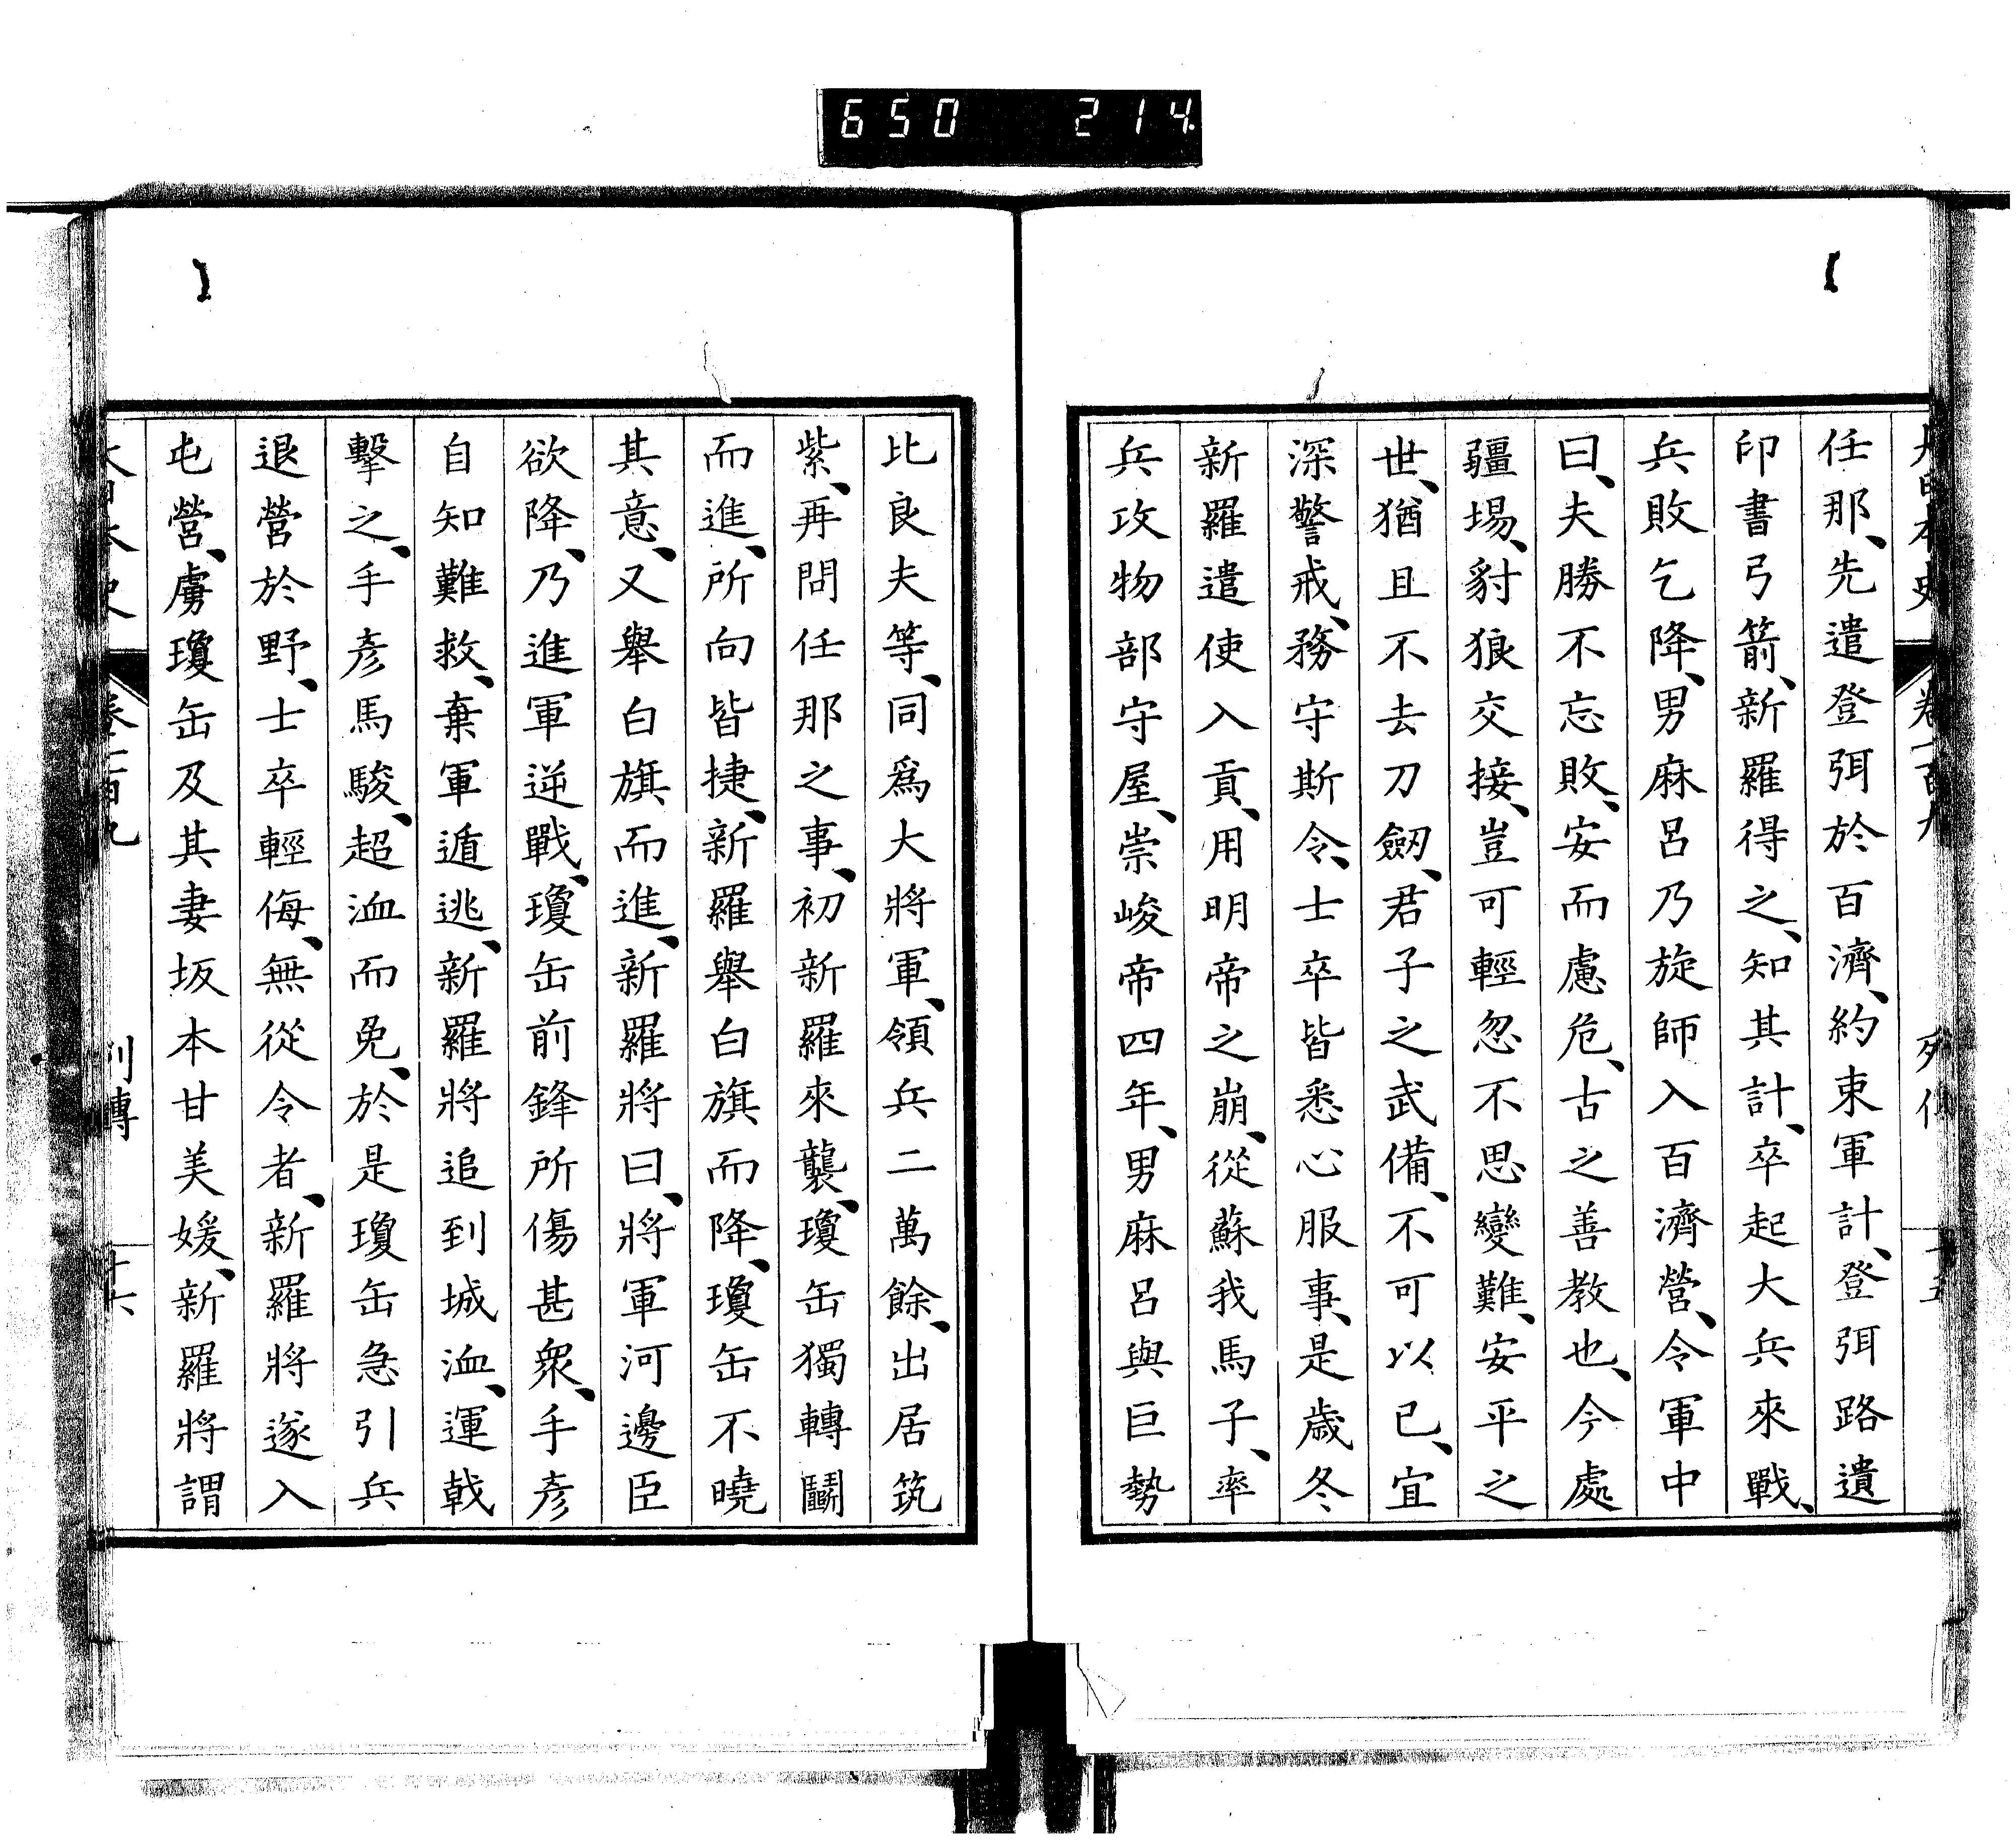 650 214
任那、先遣登弭於百濟、約束軍計、登弭路遺
印書弓箭、新羅得之、知其計、卒起大兵來戰、
兵敗乞降、男麻呂乃旋師入百濟營、令軍中
曰、夫勝不忘敗、安而慮危、古之善教也、今處
疆場、豺狼交接、豈可輕忽不思變難、安平之
世、猶且不去刀劒、君子之武備、不可以已、宜
深警戒、務守斯令、士卒皆悉心服事、是歲冬
新羅遣使入貢、用明帝之崩、從蘇我馬子、率
兵攻物部守屋、崇峻帝四年、男麻呂與巨勢
比良夫等、同爲大將軍、領兵二萬餘、出居筑
紫、再問任那之事、初新羅來襲、瓊缶獨轉鬭
而進、所向皆捷、新羅舉白旗而降、瓊缶不曉
其意、又舉白旗而進、新羅將曰、將軍河邊臣
欲降、乃進軍逆戰、瓊缶前鋒所傷甚衆、手彥
自知難救、棄軍遁逃、新羅將追到城洫、運戟
擊之、手彥馬駿、超洫而免、於是瓊缶急引兵
退營於野、士卒輕侮、無從令者、新羅將遂入
屯營、虜瓊缶及其妻坂本甘美媛、新羅將謂
大日本史 卷一百九 列傳 十六